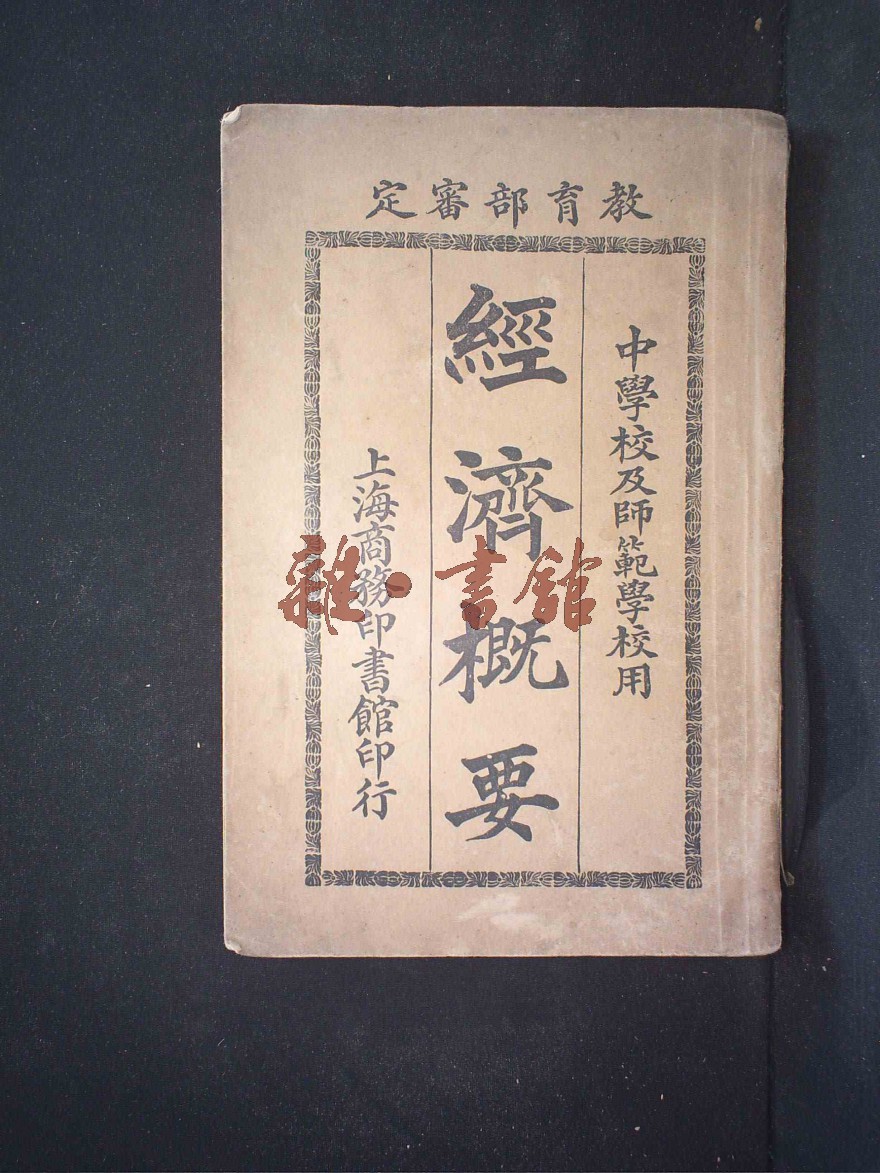 教育部審定
中學校及師範學校用
經濟概要
上海商務印書館印行
雜·書館